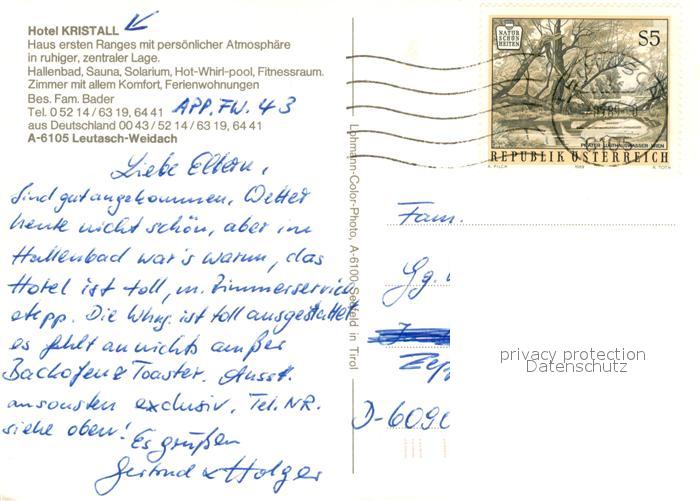 Hotel KRISTALL
Haus ersten Ranges mit persönlicher Atmosphäre
in ruhiger, zentraler Lage.
Hallenbad, Sauna, Solarium, Hot-Whirl-pool, Fitnessraum.
Zimmer mit allem Komfort, Ferienwohnungen
Bes. Fam. Bader
Tel. 0 52 14 / 63 19, 64 41 APP. FW. 43
aus Deutschland 00 43 / 52 14 / 63 19, 64 41
A-6105 Leutasch-Weidach
Liebe Eltern,
sind gut angekommen, Wetter
heute nicht schön, aber im
Hallenbad war's warm, das
Hotel ist toll, m. Zimmerservice
etepp. Die Whng. ist toll ausgestattet
es fehlt an nichts außer
Backofen & Toaster. Ausst.
ansonsten exclusiv. Tel. NR.
siehe oben!
Es grüßen
Gertrud & Holger
Lohmann-Color-Photo, A-6100 Seefeld in Tirol
NATUR
SCHÖN
HEITEN
S5
PRATER LUSTHAUSWASSER WIEN
REPUBLIK ÖSTERREICH
A. PILCH 1989 A. TOTH
Fam.
Gg.
D-6090
privacy protection
Datenschutz